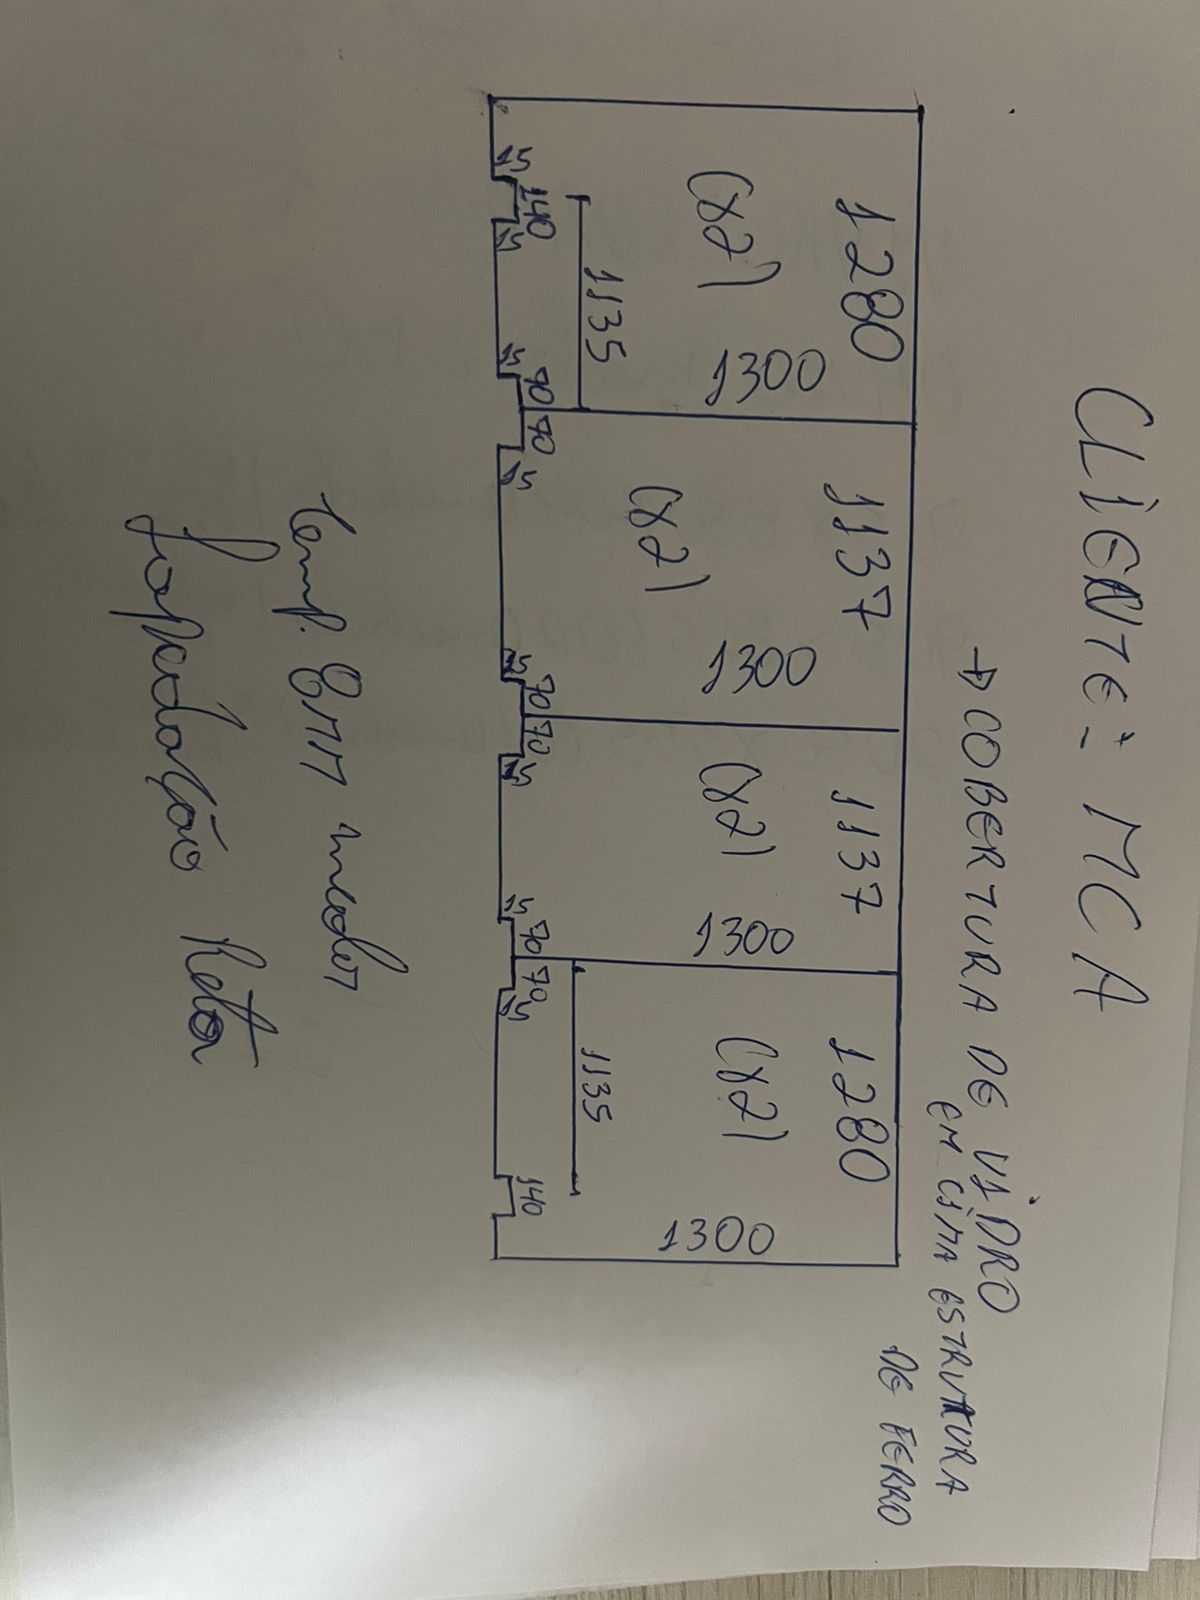 CLIENTE: MCA
→ COBERTURA DE VIDRO
EM CIMA ESTRUTURA
DE FERRO
1280 1137 1137 1280
(x2) (x2) (x2) (x2)
1300 1300 1300 1300
1135 1135
15 140 15 15 70 70 15 15 70 70 15 15 70 70 15 140
Temp. 8MM incolor
Lapidação Reta